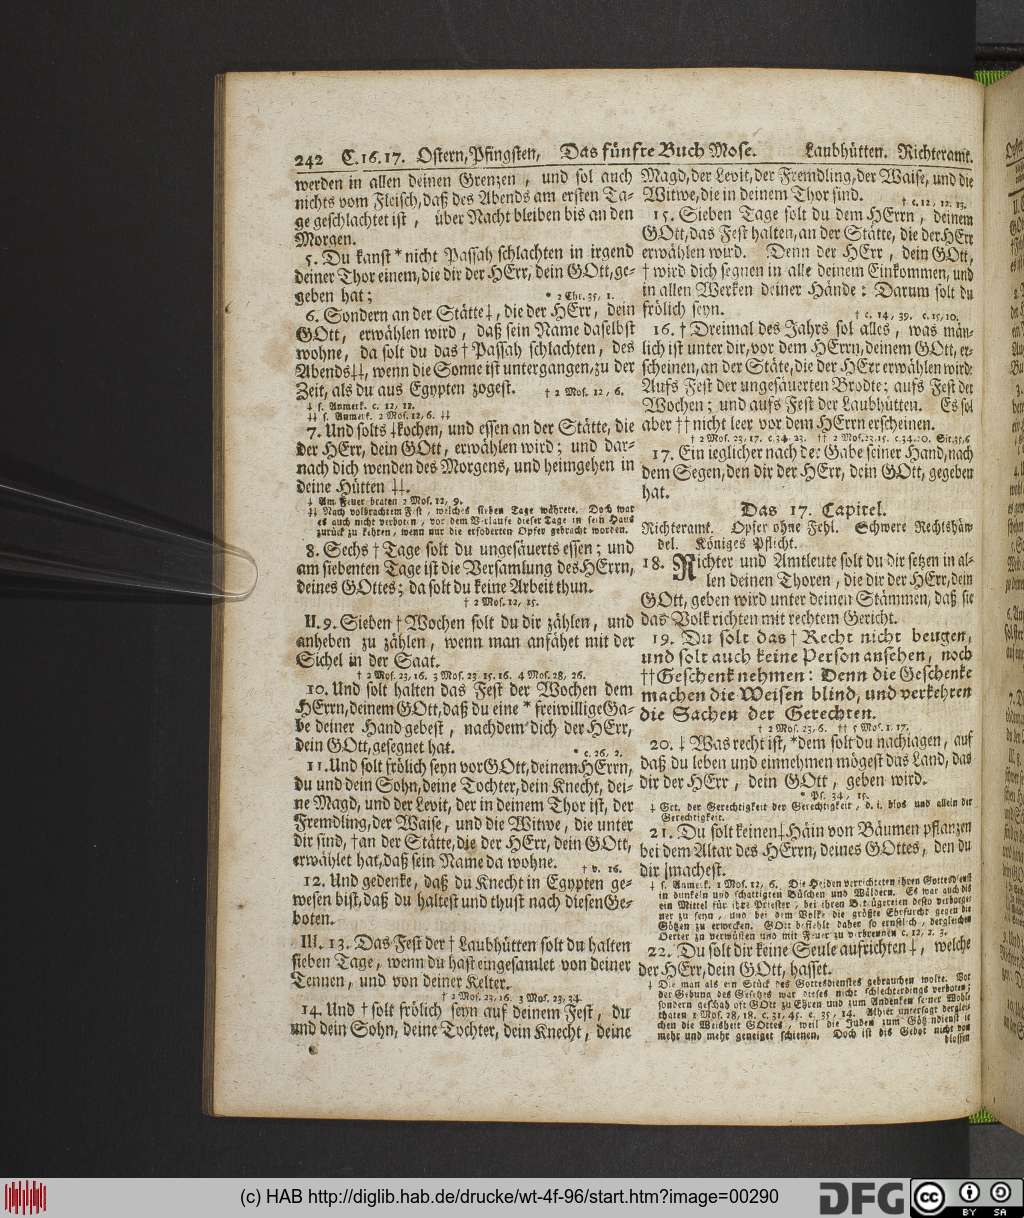 242 C. 16. 17. Ostern, Pfingsten, Das fünfte Buch Mose. Laubhütten. Richteramt.
werden in allen deinen Grenzen, und sol auch
nichts vom Fleisch, daß des Abends am ersten Ta-
ge geschlachtet ist, über Nacht bleiben bis an den
Morgen.
5. Du kanst * nicht Passah schlachten in irgend
deiner Thor einem, die dir der HErr, dein GOtt, ge-
geben hat; * 2 Chr. 35, 1.
6. Sondern an der Stätte ‡, die der HErr, dein
GOtt, erwählen wird, daß sein Name daselbst
wohne, da solt du das † Passah schlachten, des
Abends ‡‡, wenn die Sonne ist untergangen, zu der
Zeit, als du aus Egypten zogest. † 2 Mos. 12, 6.
‡ s. Anmerk. c. 12, 12.
‡‡ s. Anmerk. 2 Mos. 12, 6. ‡‡
7. Und solts ‡ kochen, und essen an der Stätte, die
der HErr, dein GOtt, erwählen wird; und dar-
nach dich wenden des Morgens, und heimgehen in
deine Hütten ‡‡.
‡ Am Feuer braten 2 Mos. 12, 9.
‡‡ Nach volbrachtem Fest, welches sieben Tage währete. Doch war
es auch nicht verboten, vor dem Verlaufe dieser Tage in sein Haus
zurück zu kehren, wenn nur die erfoderten Opfer gebracht worden.
8. Sechs † Tage solt du ungesäuerts essen; und
am siebenten Tage ist die Versamlung des HErrn,
deines GOttes; da solt du keine Arbeit thun.
† 2 Mos. 12, 15.
II. 9. Sieben † Wochen solt du dir zählen, und
anheben zu zählen, wenn man anfähet mit der
Sichel in der Saat.
† 2 Mos. 23, 16. 3 Mos. 23, 15. 16. 4 Mos. 28, 26.
10. Und solt halten das Fest der Wochen dem
HErrn, deinem GOtt, daß du eine * freiwillige Ga-
be deiner Hand gebest, nachdem dich der HErr,
dein GOtt, gesegnet hat. * c. 26, 2.
11. Und solt frölich seyn vor GOtt, deinem HErrn,
du und dein Sohn, deine Tochter, dein Knecht, dei-
ne Magd, und der Levit, der in deinem Thor ist, der
Fremdling, der Waise, und die Witwe, die unter
dir sind, † an der Stätte, die der HErr, dein GOtt,
erwählet hat, daß sein Name da wohne. † v. 16.
12. Und gedenke, daß du Knecht in Egypten ge-
wesen bist, daß du haltest und thust nach diesen Ge-
boten.
III. 13. Das Fest der † Laubhütten solt du halten
sieben Tage, wenn du hast eingesamlet von deiner
Tennen, und von deiner Kelter.
† 2 Mos. 23, 16. 3 Mos. 23, 34.
14. Und † solt frölich seyn auf deinem Fest, du
und dein Sohn, deine Tochter, dein Knecht, deine
Magd, der Levit, der Fremdling, der Waise, und die
Witwe, die in deinem Thor sind. † c. 12, 12. 13.
15. Sieben Tage solt du dem HErrn, deinem
GOtt, das Fest halten, an der Stätte, die der HErr
erwählen wird. Denn der HErr, dein GOtt,
† wird dich segnen in alle deinem Einkommen, und
in allen Werken deiner Hände: Darum solt du
frölich seyn. † c. 14, 39. c. 15, 10.
16. † Dreimal des Jahrs sol alles, was män-
lich ist unter dir, vor dem HErrn, deinem GOtt, er-
scheinen, an der Stäte, die der HErr erwählen wird:
Aufs Fest der ungesäuerten Brodte; aufs Fest der
Wochen; und aufs Fest der Laubhütten. Es sol
aber †† nicht leer vor dem HErrn erscheinen.
† 2 Mos. 23, 17. c. 34, 23. †† 2 Mos. 23, 15. c. 34, 20. Sir. 35, 6
17. Ein ieglicher nach der Gabe seiner Hand, nach
dem Segen, den dir der HErr, dein GOtt, gegeben
hat.
Das 17. Capitel.
Richteramt. Opfer ohne Fehl. Schwere Rechtshän-
del. Königes Pflicht.
18. Richter und Amtleute solt du dir setzen in al-
len deinen Thoren, die dir der HErr, dein
GOtt, geben wird unter deinen Stämmen, daß sie
das Volk richten mit rechtem Gericht.
19. Du solt das † Recht nicht beugen,
und solt auch keine Person ansehen, noch
†† Geschenk nehmen: Denn die Geschenke
machen die Weisen blind, und verkehren
die Sachen der Gerechten.
† 2 Mos. 23, 6. †† 5 Mos. 1, 17.
20. ‡ Was recht ist, * dem solt du nachjagen, auf
daß du leben und einnehmen mögest das Land, das
dir der HErr, dein GOtt, geben wird.
* Ps. 34, 15.
‡ Grt. der Gerechtigkeit der Gerechtigkeit, d. i. blos und allein der
Gerechtigkeit.
21. Du solt keinen ‡ Häin von Bäumen pflanzen
bei dem Altar des HErrn, deines GOttes, den du
dir machest.
‡ s. Anmerk. 1 Mos. 12, 6. Die Heiden verrichteten ihren Gottesdienst
in dunkeln und schattigten Büschen und Wäldern. Es war auch dis
ein Mittel für ihre Priester, bei ihren Betrügereien desto verborge-
ner zu seyn, und bei dem Volke die größte Ehrfurcht gegen die
Götzen zu erwecken. GOtt befiehlt daher so ernstlich, dergleichen
Oerter zu verwüsten und mit Feuer zu verbrennen c. 12, 2. 3.
22. Du solt dir keine Seule aufrichten ‡, welche
der HErr, dein GOtt, hasset.
‡ Die man als ein Stück des Gottesdienstes gebrauchen wolte. Vor
der Gebung des Gesetzes war dieses nicht schlechterdings verboten;
sondern geschah oft GOtt zu Ehren und zum Andenken seiner Wohl-
thaten 1 Mos. 28, 18. c. 31, 45. c. 35, 14. Alhier untersagt derglei-
chen die Weisheit GOttes, weil die Juden zum Götzendienst ie
mehr und mehr geneiget schienen. Doch ist dis Gebot nicht von
blossen
(c) HAB http://diglib.hab.de/drucke/wt-4f-96/start.htm?image=00290
DFG
cc BY SA